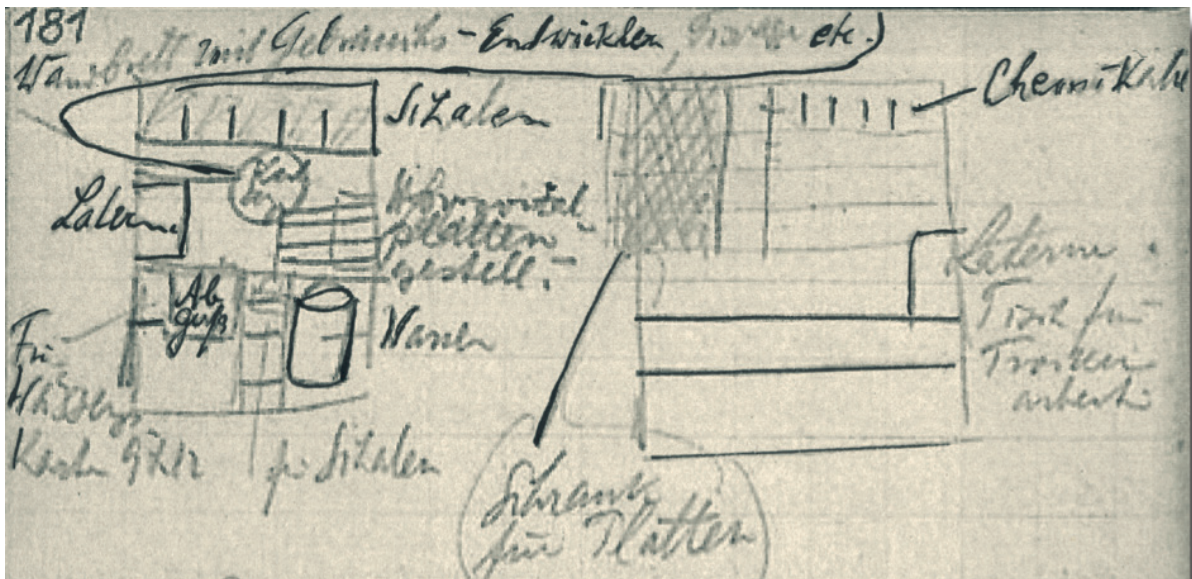 181
Wandbrett mit Gebrauchs-Entwickler, etc.)
Schalen
Chemikalie
Latern.
platten-
gestell.
Ab
guß
Laterne.
Für
Wannen
Tisch für
Trocken
arbeit
Wässerungs
Kasten 9x12
für Schalen
Schrank
für Platten